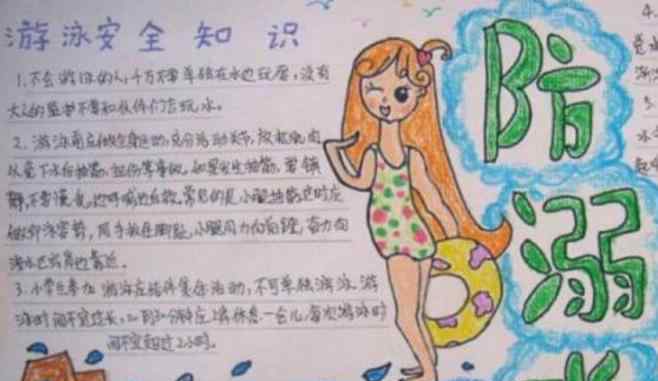 游泳安全知识
1.不会游泳的人,千万不要单独在水边玩, 没有
大人的监护不要和伙伴们去玩水。
2.游泳前应做全身运动,充分活动关节,放松肌肉
以免下水后抽筋、扭伤等事故,如果发生抽筋,要镇
静,不要慌乱,边呼喊边自救。常见的是小腿抽筋这时应
做仰泳姿势,用手扳住脚趾,小腿用力向前蹬,奋力向
浅水区或岸边靠近。
3.小学生参加游泳应结伴集体活动,不可单独游泳。游
泳时间不宜过长, 分钟应上岸休息一会儿,每次游泳时
间不宜超过2小时。
防
溺
水
4.